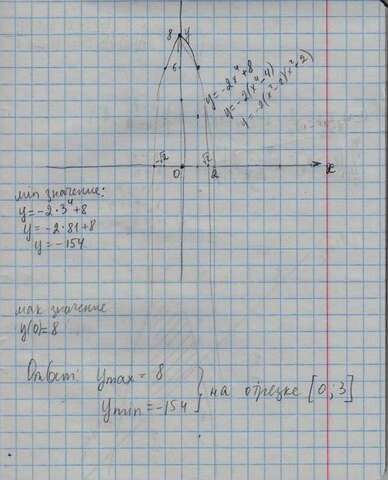 8 y
6
y=-2x⁴+8
y=-2(x⁴-4)
y=-2(x²-2)(x²+2)
-√2 0 √2 2 x
мин значение:
y=-2·3⁴+8
y=-2·81+8
y=-154
мак значение
y(0)=8
Ответ: ymax=8
ymin=-154 } на отрезке [0;3]